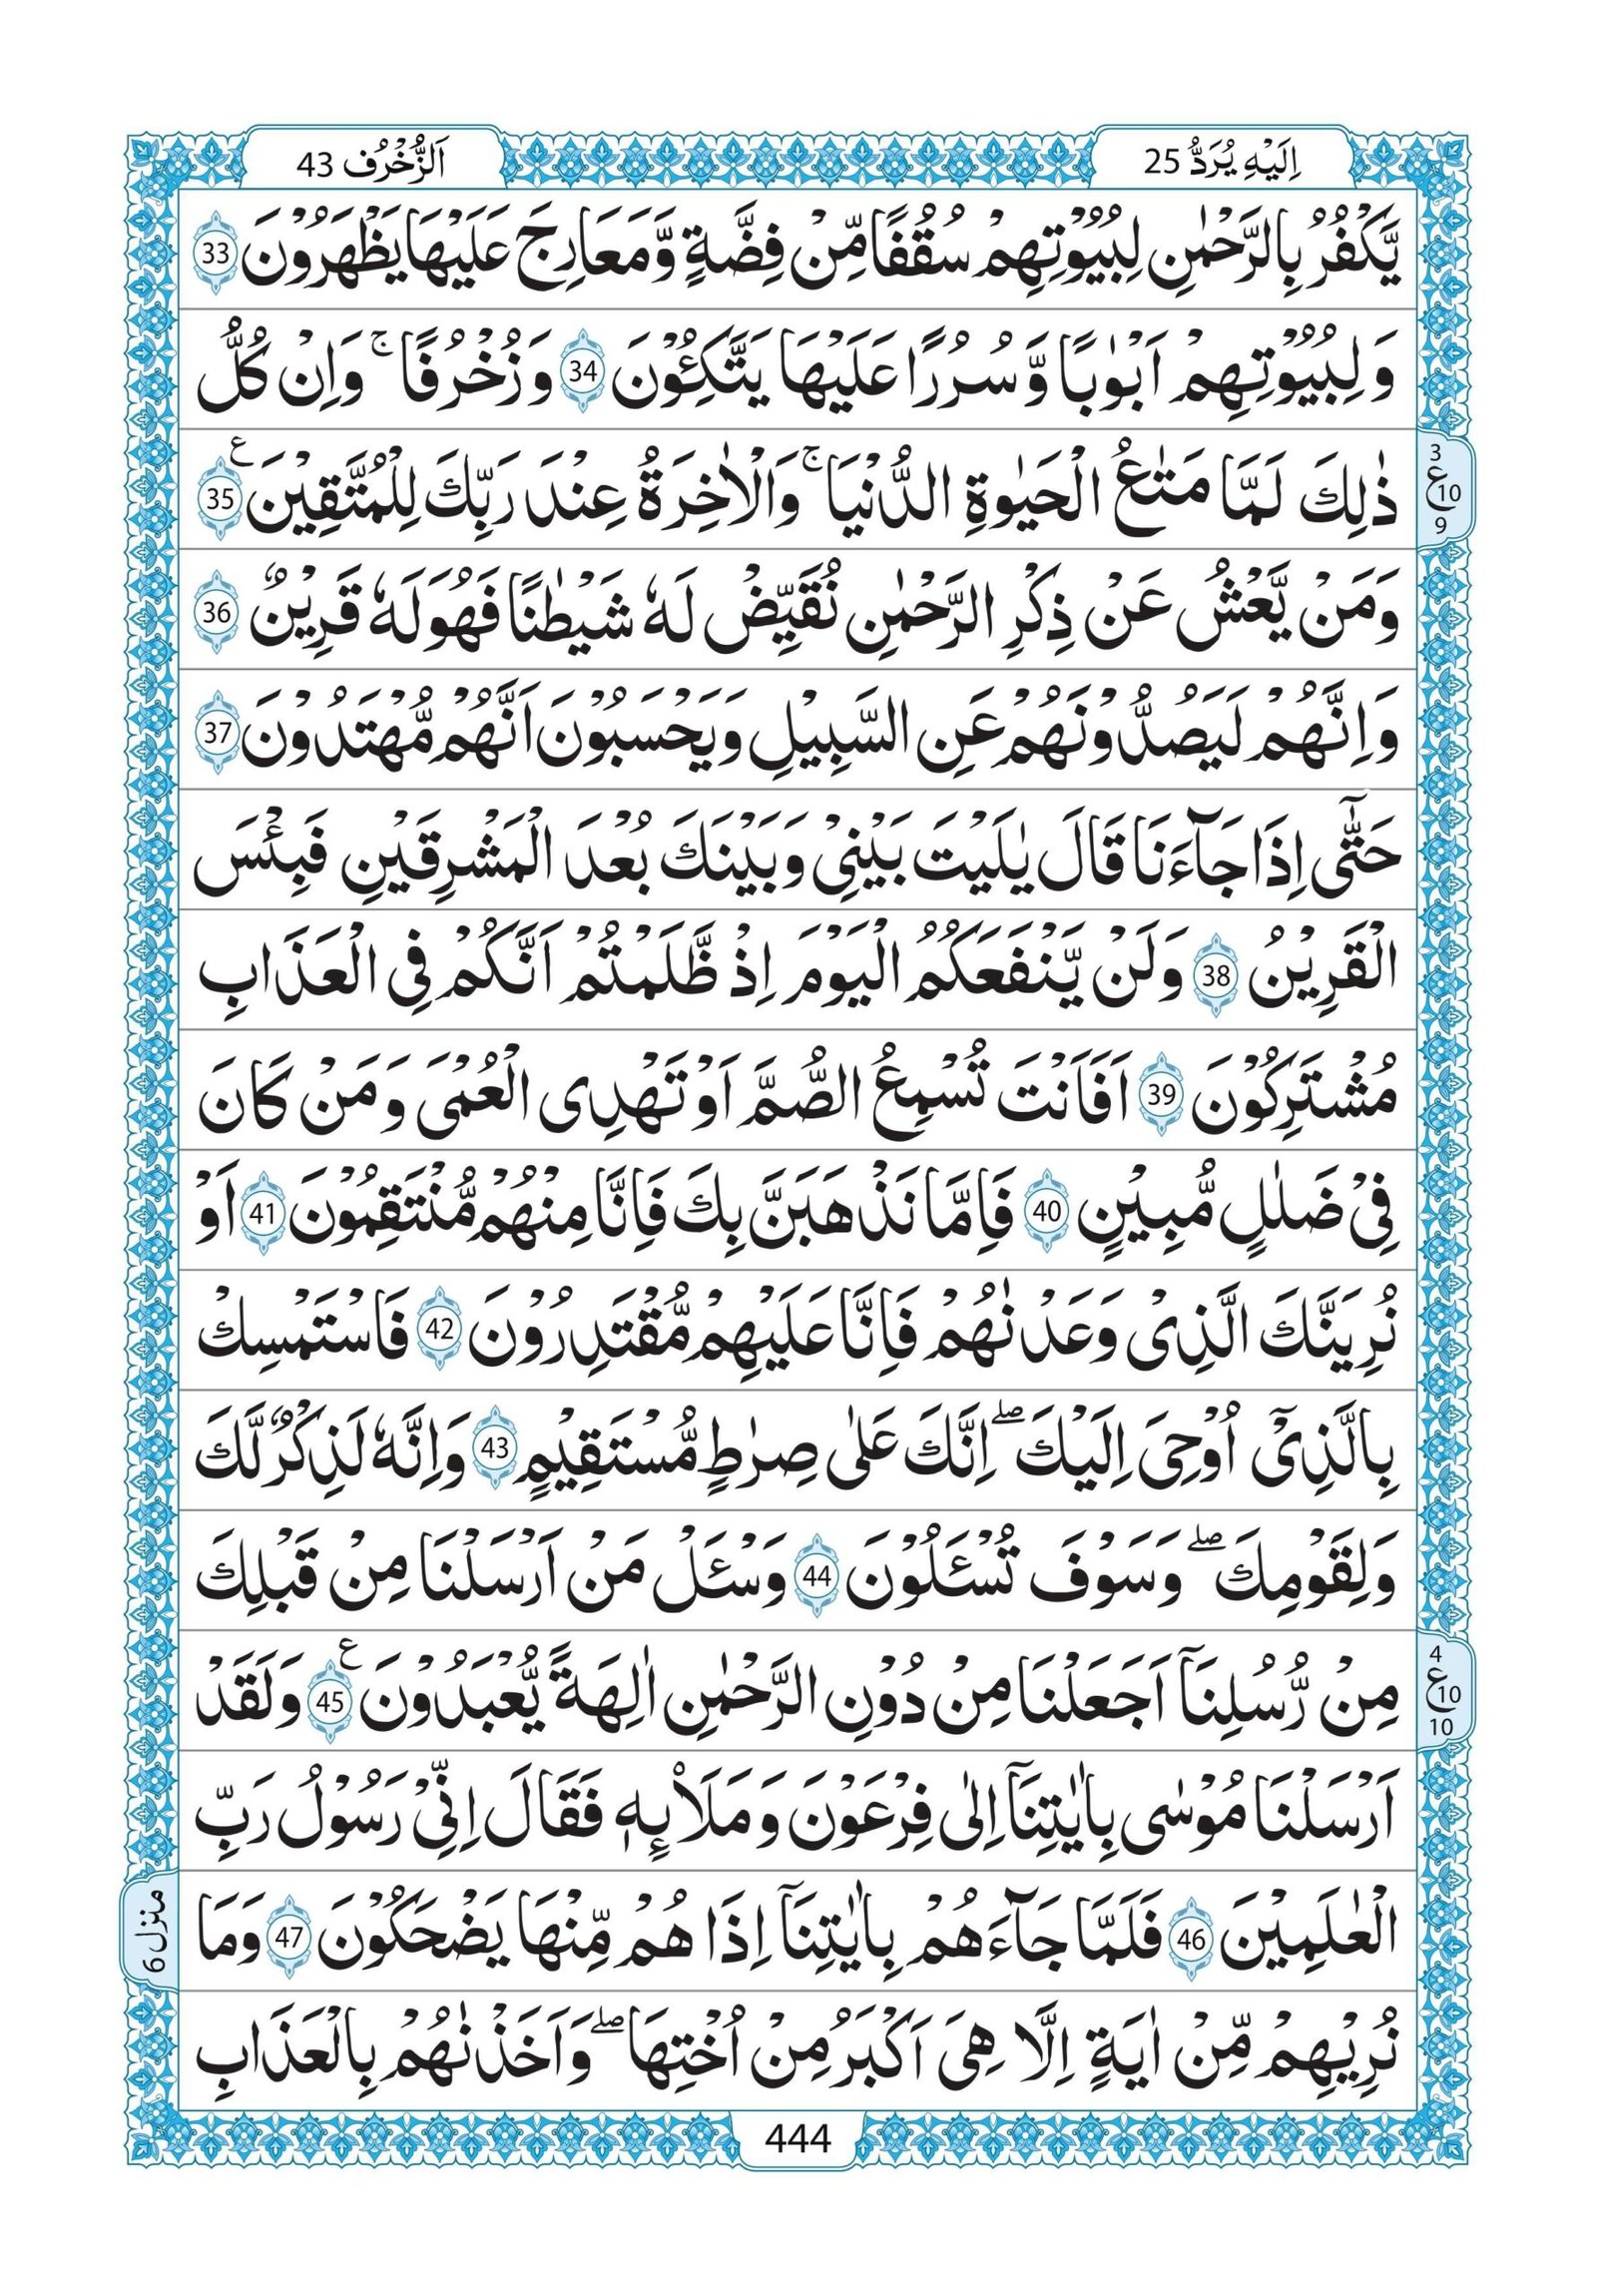 اِلَيْهِ يُرَدُّ 25
اَلزُّخْرُف 43
يَّكْفُرُ بِالرَّحْمٰنِ لِبُيُوْتِهِمْ سُقُفًا مِّنْ فِضَّةٍ وَّمَعَارِجَ عَلَيْهَا يَظْهَرُوْنَ 33
وَلِبُيُوْتِهِمْ اَبْوٰبًا وَّسُرُرًا عَلَيْهَا يَتَّكِئُوْنَ 34 وَزُخْرُفًا ۚ وَاِنْ كُلُّ
ذٰلِكَ لَمَّا مَتٰعُ الْحَيٰوةِ الدُّنْيَا ۚ وَالْاٰخِرَةُ عِنْدَ رَبِّكَ لِلْمُتَّقِيْنَ ع 35
3 ع 10 9
وَمَنْ يَّعْشُ عَنْ ذِكْرِ الرَّحْمٰنِ نُقَيِّضْ لَهٗ شَيْطٰنًا فَهُوَ لَهٗ قَرِيْنٌ 36
وَاِنَّهُمْ لَيَصُدُّوْنَهُمْ عَنِ السَّبِيْلِ وَيَحْسَبُوْنَ اَنَّهُمْ مُّهْتَدُوْنَ 37
حَتّٰٓى اِذَا جَآءَنَا قَالَ يٰلَيْتَ بَيْنِيْ وَبَيْنَكَ بُعْدَ الْمَشْرِقَيْنِ فَبِئْسَ
الْقَرِيْنُ 38 وَلَنْ يَّنْفَعَكُمُ الْيَوْمَ اِذْ ظَّلَمْتُمْ اَنَّكُمْ فِى الْعَذَابِ
مُشْتَرِكُوْنَ 39 اَفَاَنْتَ تُسْمِعُ الصُّمَّ اَوْ تَهْدِى الْعُمْىَ وَمَنْ كَانَ
فِيْ ضَلٰلٍ مُّبِيْنٍ 40 فَاِمَّا نَذْهَبَنَّ بِكَ فَاِنَّا مِنْهُمْ مُّنْتَقِمُوْنَ 41 اَوْ
نُرِيَنَّكَ الَّذِيْ وَعَدْنٰهُمْ فَاِنَّا عَلَيْهِمْ مُّقْتَدِرُوْنَ 42 فَاسْتَمْسِكْ
بِالَّذِيْٓ اُوْحِيَ اِلَيْكَ ۖ اِنَّكَ عَلٰى صِرٰطٍ مُّسْتَقِيْمٍ 43 وَاِنَّهٗ لَذِكْرٌ لَّكَ
وَلِقَوْمِكَ ۖ وَسَوْفَ تُسْـَٔلُوْنَ 44 وَسْـَٔلْ مَنْ اَرْسَلْنَا مِنْ قَبْلِكَ
مِنْ رُّسُلِنَآ اَجَعَلْنَا مِنْ دُوْنِ الرَّحْمٰنِ اٰلِهَةً يُّعْبَدُوْنَ ع 45 وَلَقَدْ
4 ع 10 10
اَرْسَلْنَا مُوْسٰى بِاٰيٰتِنَآ اِلٰى فِرْعَوْنَ وَمَلَاْئِهٖ فَقَالَ اِنِّيْ رَسُوْلُ رَبِّ
الْعٰلَمِيْنَ 46 فَلَمَّا جَآءَهُمْ بِاٰيٰتِنَآ اِذَا هُمْ مِّنْهَا يَضْحَكُوْنَ 47 وَمَا
منزل 6
نُرِيْهِمْ مِّنْ اٰيَةٍ اِلَّا هِيَ اَكْبَرُ مِنْ اُخْتِهَا ۖ وَاَخَذْنٰهُمْ بِالْعَذَابِ
444